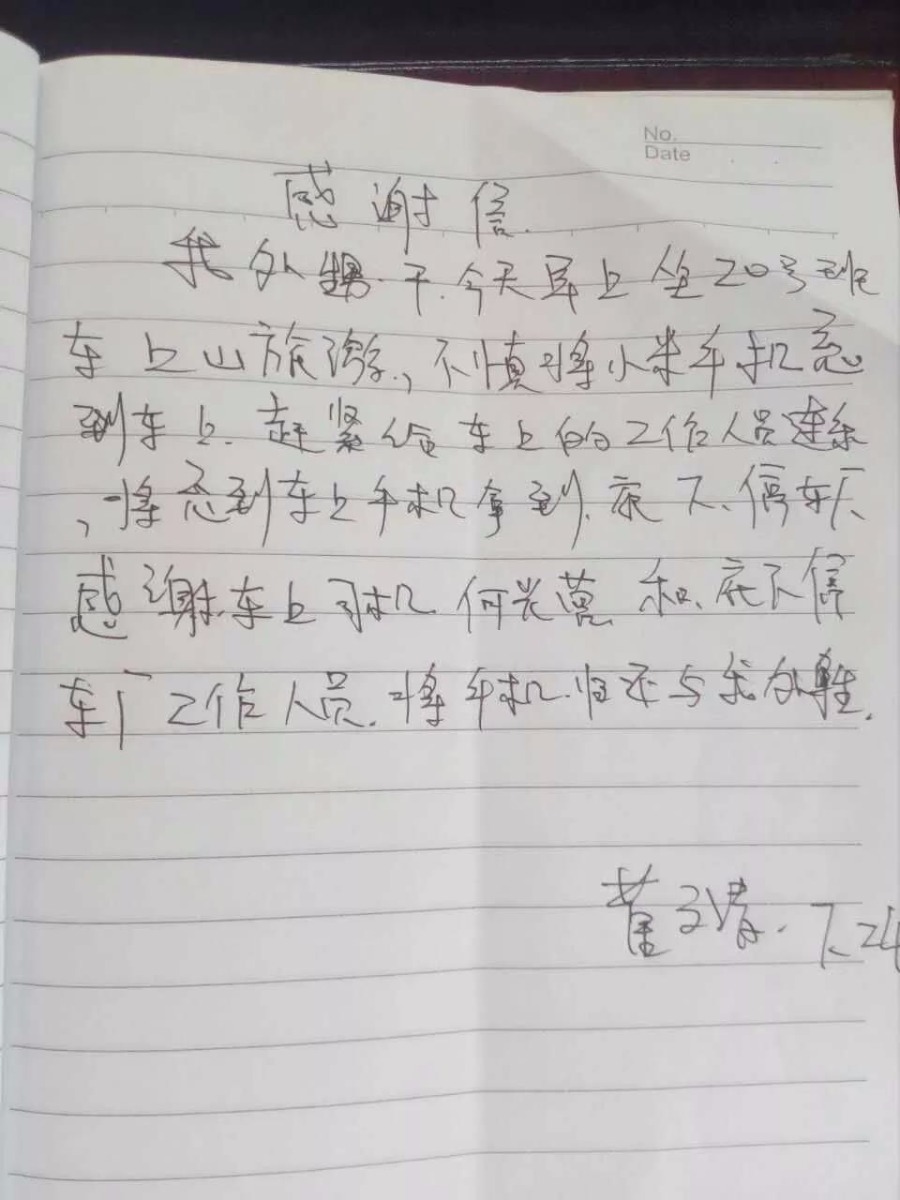 No.
Date
感谢信
我外甥·于今天早上坐20号班
车上山旅游,不慎将小米手机忘
到车上.赶紧给车上的工作人员连系
,将忘到车上手机拿到.底下.停车厂
感谢.车上司机.何兴 和.底下停
车厂工作人员.将手机.归还与我外甥.
董 清.7.24